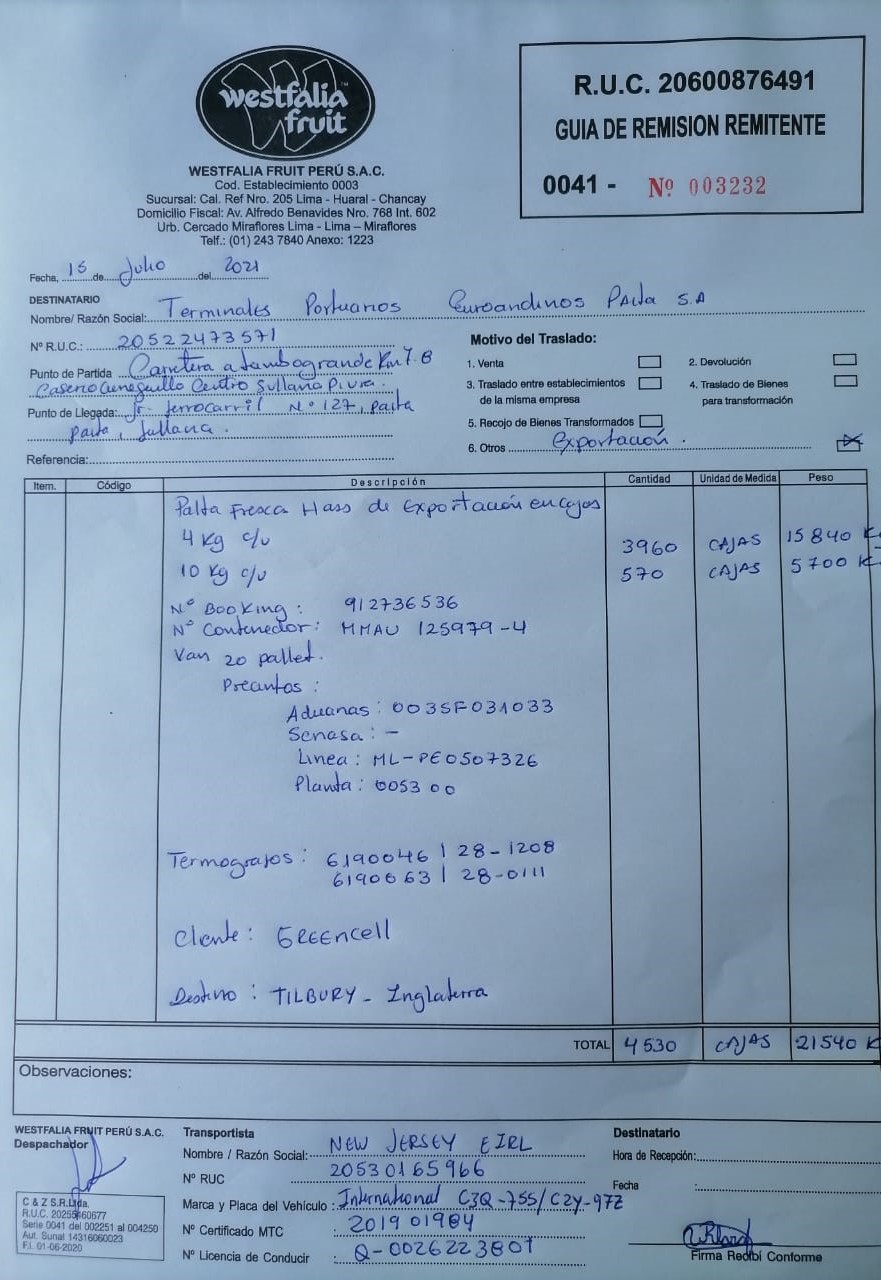 westfalia™
fruit
WESTFALIA FRUIT PERÚ S.A.C.
Cod. Establecimiento 0003
Sucursal: Cal. Ref Nro. 205 Lima - Huaral - Chancay
Domicilio Fiscal: Av. Alfredo Benavides Nro. 768 Int. 602
Urb. Cercado Miraflores Lima - Lima – Miraflores
Telf.: (01) 243 7840 Anexo: 1223
R.U.C. 20600876491
GUIA DE REMISION REMITENTE
0041 - Nº 003232
Fecha, 15 de Julio del 2021
DESTINATARIO
Nombre/ Razón Social: Terminales Portuarios Euroandinos Paita S.A
Nº R.U.C.: 20522473571
Punto de Partida Carretera a tambogrande Km 7.8
Caserio Cieneguillo Centro Sullana Piura.
Punto de Llegada: Jr. ferrocarril Nº 127, paita
paita, Sullana.
Referencia:
Motivo del Traslado:
1. Venta
2. Devolución
3. Traslado entre establecimientos
de la misma empresa
4. Traslado de Bienes
para transformación
5. Recojo de Bienes Transformados
6. Otros Exportación.
Item. Código Descripción Cantidad Unidad de Medida Peso
Palta Fresca Hass de Exportación en cajas
4 Kg c/u 3960 CAJAS 15840 K
10 Kg c/u 570 CAJAS 5700 K
Nº Booking: 912736536
Nº Contenedor: MMAU 125979-4
Van 20 pallet.
Precintos:
Aduanas: 003SF031033
Senasa: -
Linea: ML-PE0507326
Planta: 005300
Termografos: 6190046 | 28-1208
6190063 | 28-0111
Cliente: GREENCELL
Destino: TILBURY - Inglaterra
TOTAL 4530 CAJAS 21540 K
Observaciones:
WESTFALIA FRUIT PERÚ S.A.C.
Despachador
C & Z S.R.Ltda.
R.U.C. 20255460677
Serie 0041 del 002251 al 004250
Aut. Sunat 14316060023
F.I. 01-06-2020
Transportista
Nombre / Razón Social: NEW JERSEY EIRL
Nº RUC 20530165966
Marca y Placa del Vehículo: International C3Q-755/C2Y-972
Nº Certificado MTC : 201901984
Nº Licencia de Conducir : Q-0026223801
Destinatario
Hora de Recepción:
Fecha :
Firma Recibí Conforme